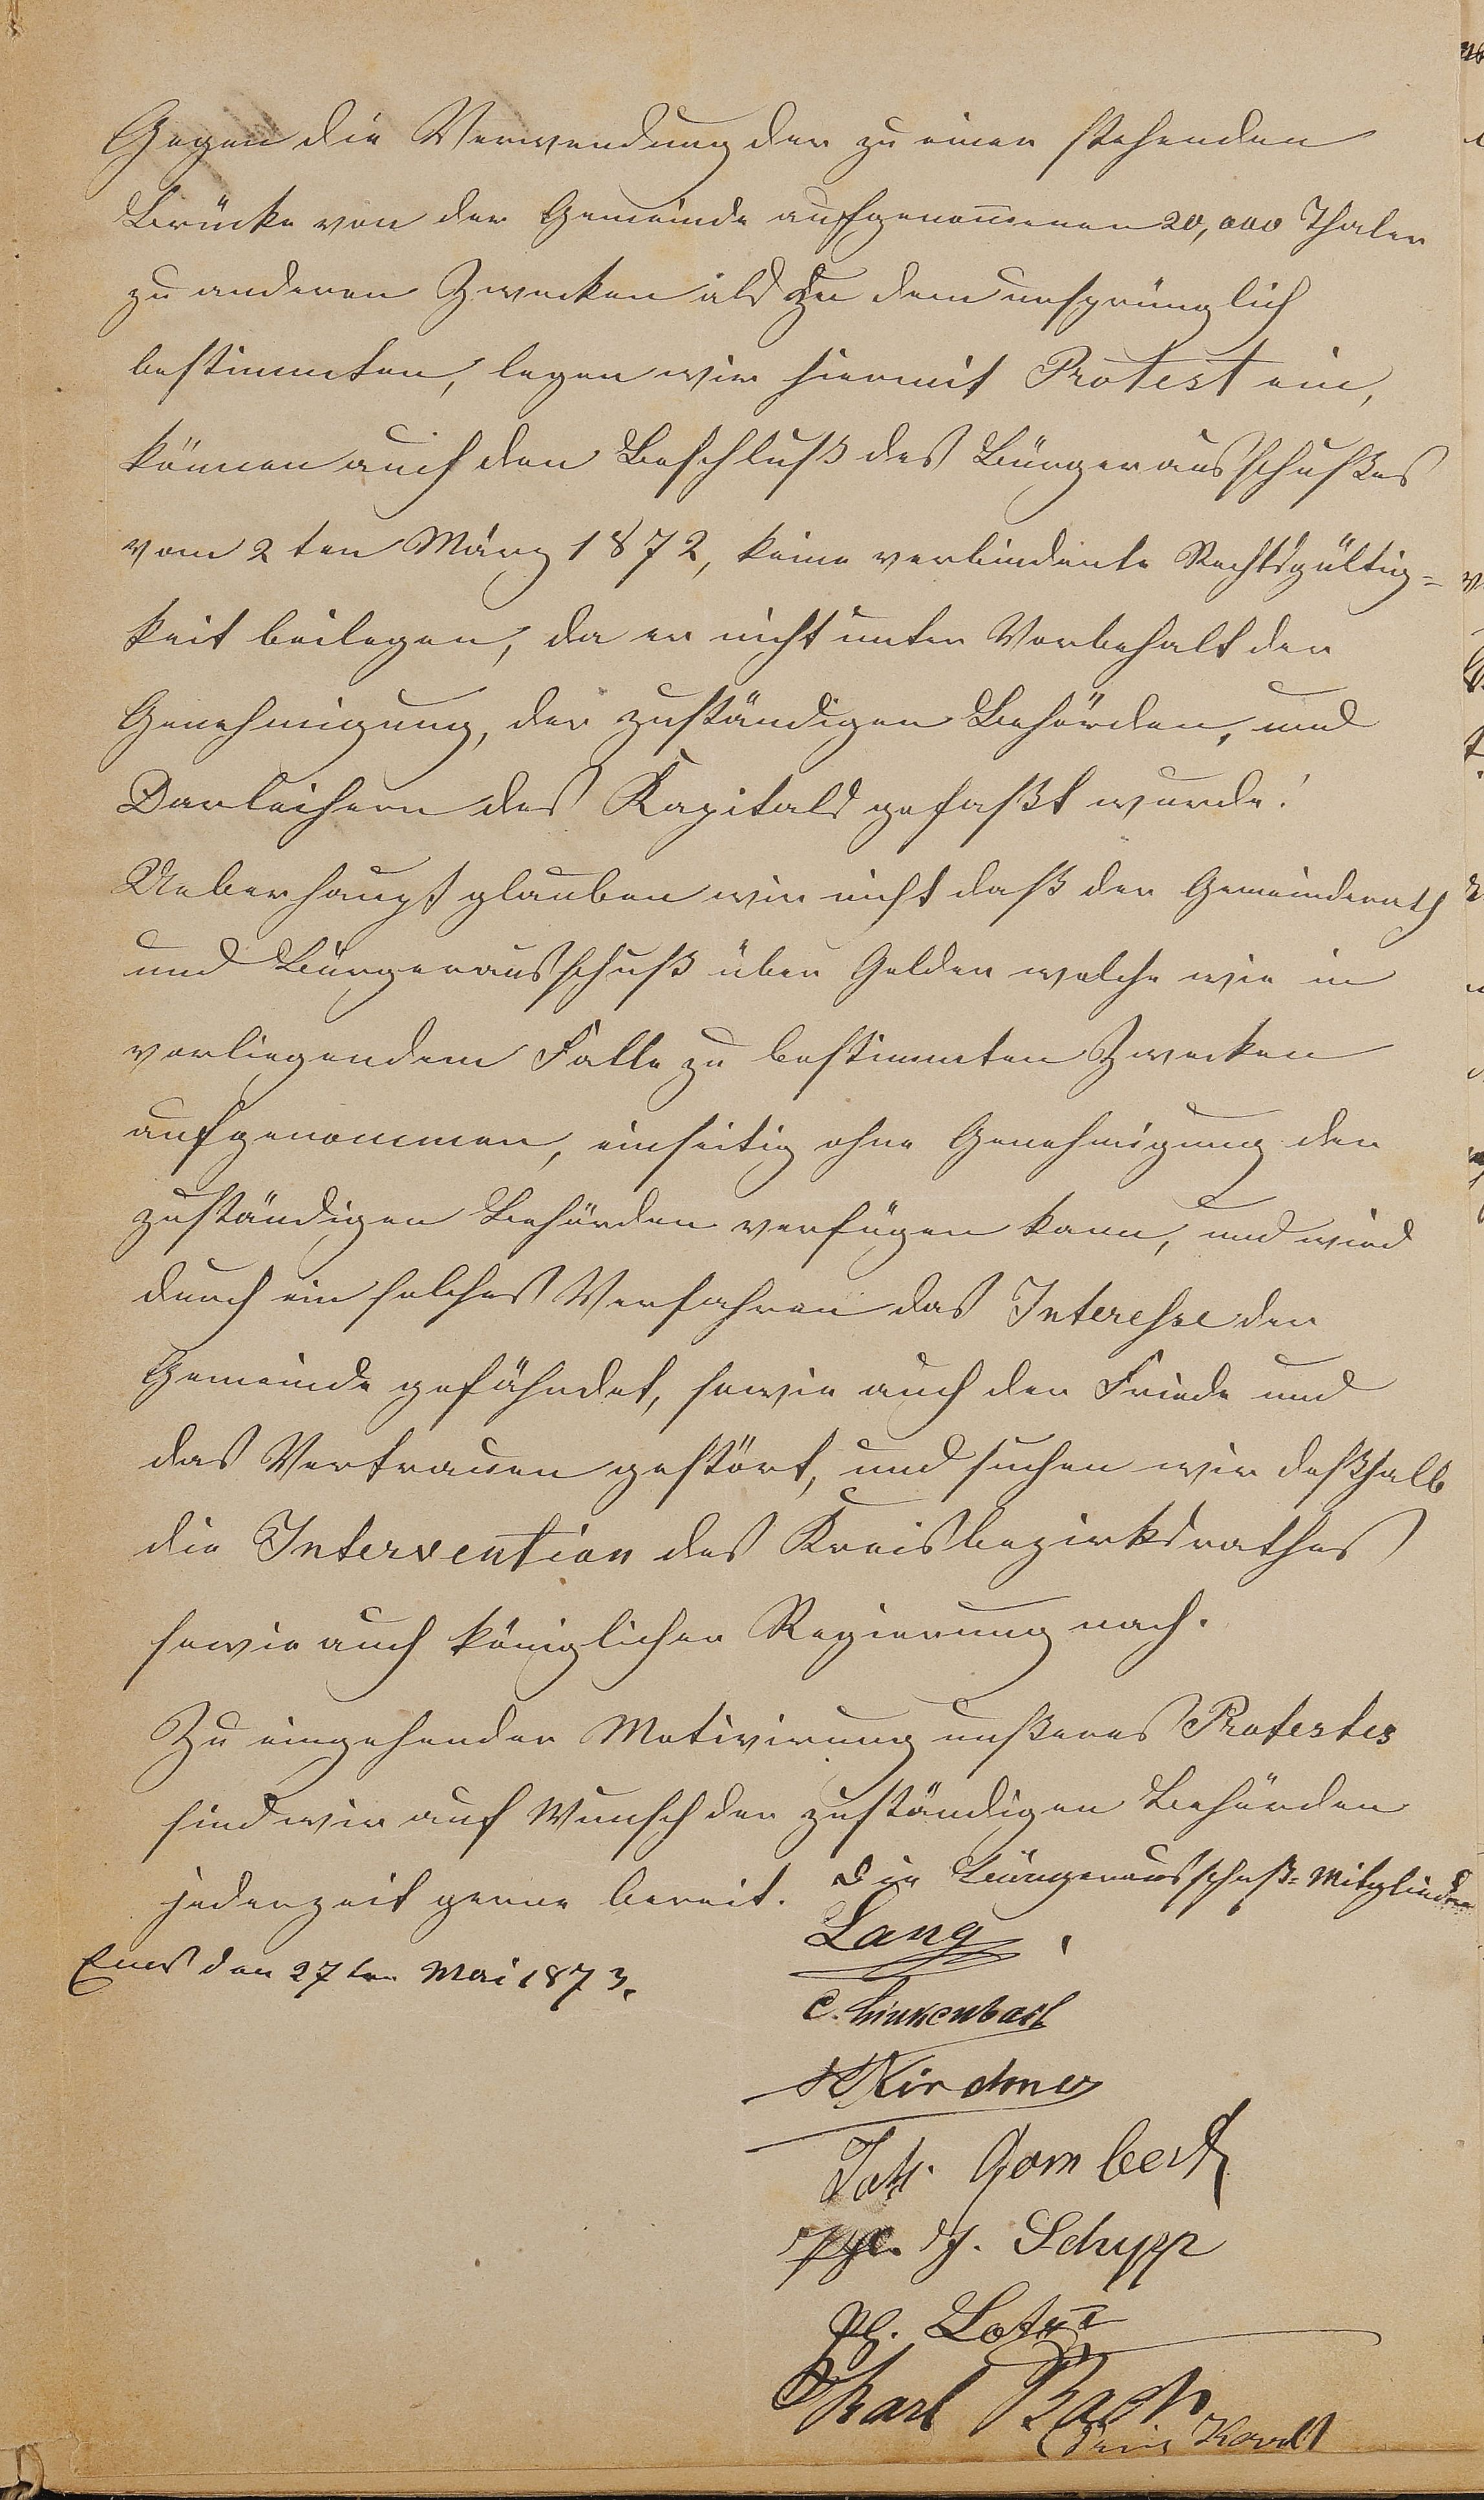 Gegen die Verwendung der zu einer stehenden
Brücke von der Gemeinde aufgenom̄enen 20,000 Thaler
zu anderen Zwecken als zu dem ursprünglich
bestimmten, legen wir hiermit Protest ein,
können auch den Beschluß des Bürgerausschußes
vom 2ten März 1872, keine verbindente Rechtsgültig=
keit beilegen, da er nicht unter Vorbehalt der
Genehmigung, der zuständigen Behörden, und
Darleihern des Kapitals gefaßt wurde!
Ueberhaupt glauben wir nicht daß der Gemeinderath
und Bürgerausschuß über Gelder welche wie in
vorliegendem Falle zu bestimmten Zwecken
aufgenommen, einseitig ohne Genehmigung der
zuständigen Behörden verfügen kann, und wird
durch ein solches Verfahren das Interesse der
Gemeinde gefährdet, sowie auch der Friede und
das Vertrauen gestört, und suchen wir deßhalb
die Intervention des Kreisbezirksrathes
sowie auch königlicher Regierung nach.
Zu eingehender Motivirung unßeres Protestes
sind wir auf Wunsch der zuständigen Behörden
jederzeit gerne bereit. Die Bürgerausschuß=Mitglieder
Lang
Ems den 27ten Mai 1873.
C. Linkenbach
Kirchner
Joh. Gombert
J. Schupp
Ph. Lotz
Karl Bach